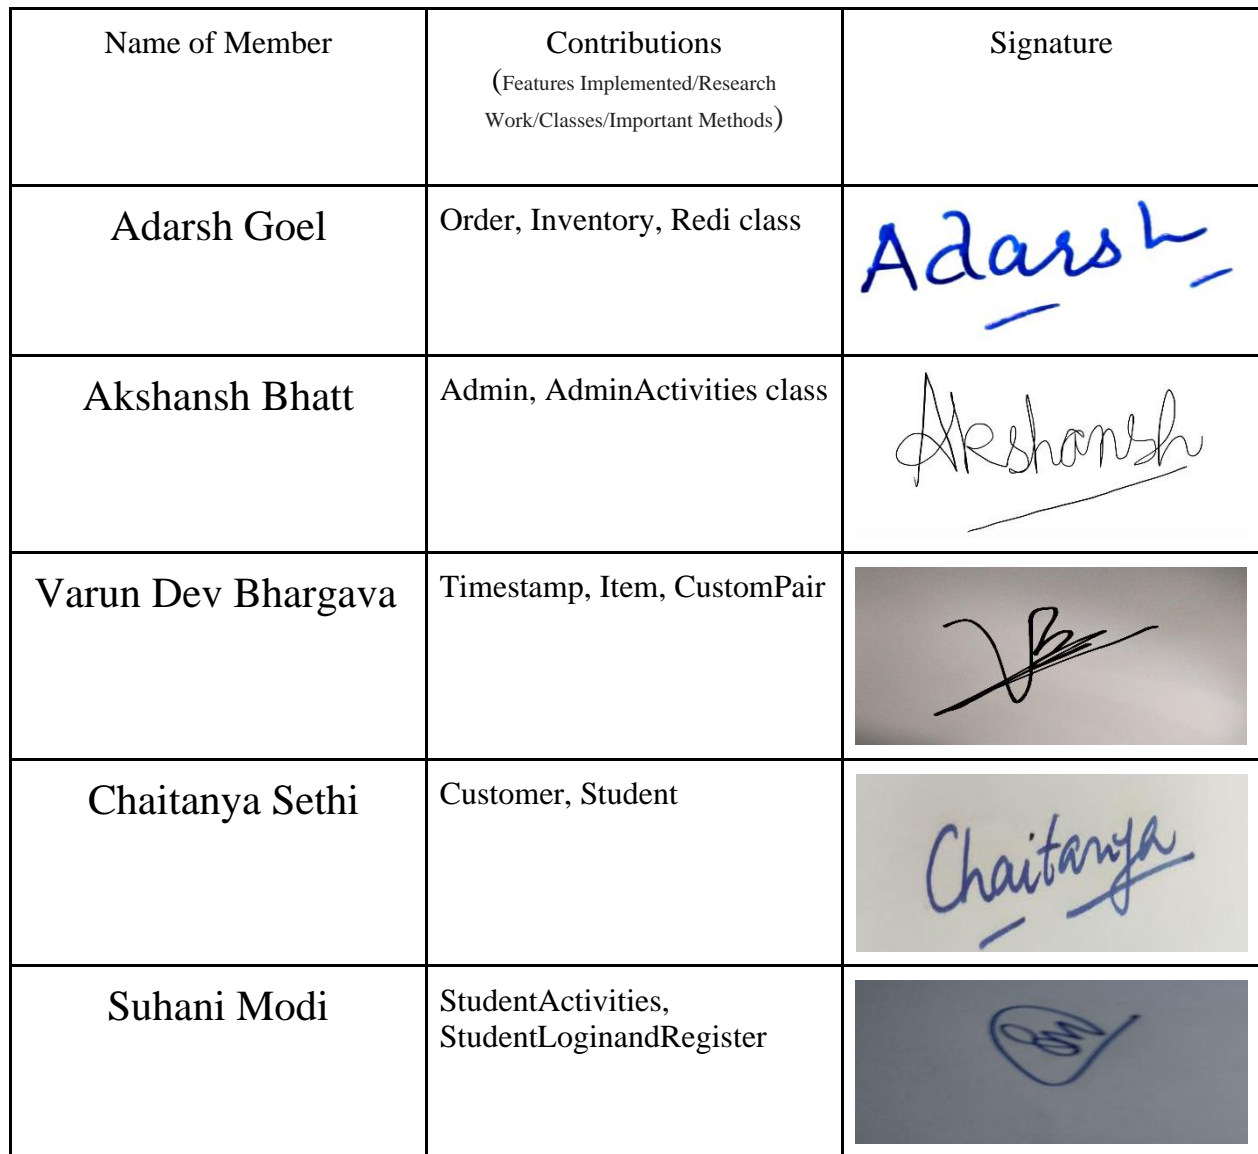 Name of Member
Contributions
(Features Implemented/Research
Work/Classes/Important Methods)
Signature
Adarsh Goel
Order, Inventory, Redi class
Adarsh
Akshansh Bhatt
Admin, AdminActivities class
Akshansh
Varun Dev Bhargava
Timestamp, Item, CustomPair
VB
Chaitanya Sethi
Customer, Student
Chaitanya
Suhani Modi
StudentActivities,
StudentLoginandRegister
SM